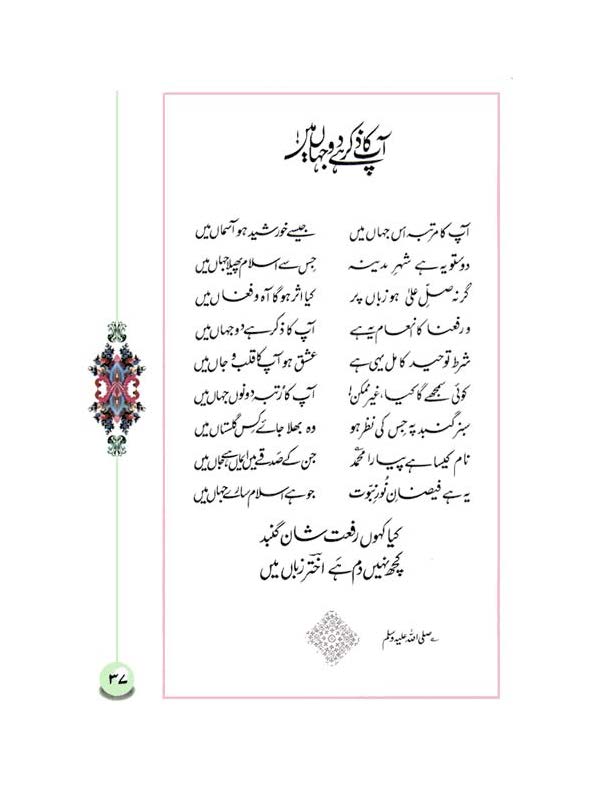 آپ کا ذکر ہے دو جہاں میں
آپ کا مرتبہ اس جہاں میں جیسے خورشید ہو آسماں میں
دوستو یہ ہے شہرِ مدینہ جس سے اسلام پھیلا جہاں میں
گر نہ صلِّ علیٰ ہو زباں پر کیا اثر ہوگا آہ و فغاں میں
ورفعنا کا انعام یہ ہے آپ کا ذکر ہے دو جہاں میں
شرط توحید کامل یہی ہے عشق ہو آپ کا قلب و جاں میں
کوئی سمجھے گا کیا، غیر ممکن! آپ کا رُتبہ دونوں جہاں میں
سبز گنبد پہ جس کی نظر ہو وہ بھلا جائے کس گلستاں میں
نام کیسا ہے پیارا محمدؐ جن کے صدقے میں ہے جاں میں
یہ ہے فیضانِ نُورِ نبوت جو ہے اسلام سارے جہاں میں
کیا کہوں رفعت شان گنبد
کچھ نہیں دم ہے اخترؔ زباں میں
؎ صلی اللہ علیہ وسلم
۳۷